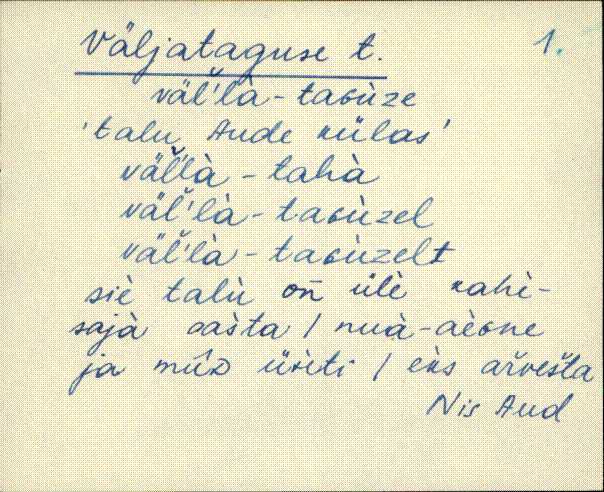 Väljataguse t. 1.
väl̆'là-taɢùze
'talu Aude külas'
väl̆'là-tahà
väl̆'là-taɢùzel
väl̆'là-taɢùzelt
siè talù on̄ ülè kahè-
sajà aàsta / nuà-aèɢne
ja mûD üteti / eks ar̆vešta
Nis Aud